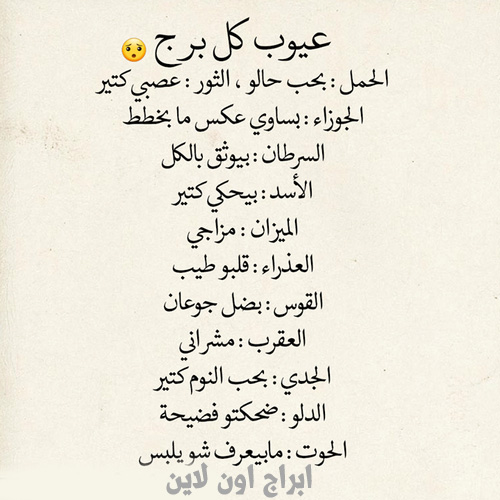 عيوب كل برج 😯
الحمل : بحب حالو ، الثور : عصبي كتير
الجوزاء : بساوي عكس ما بخطط
السرطان : بيوثق بالكل
الأسد : بيحكي كتير
الميزان : مزاجي
العذراء : قلبو طيب
القوس : بضل جوعان
العقرب : مشراني
الجدي : بحب النوم كتير
الدلو : ضحكتو فضيحة
الحوت : مابيعرف شو يلبس
ابراج اون لاين